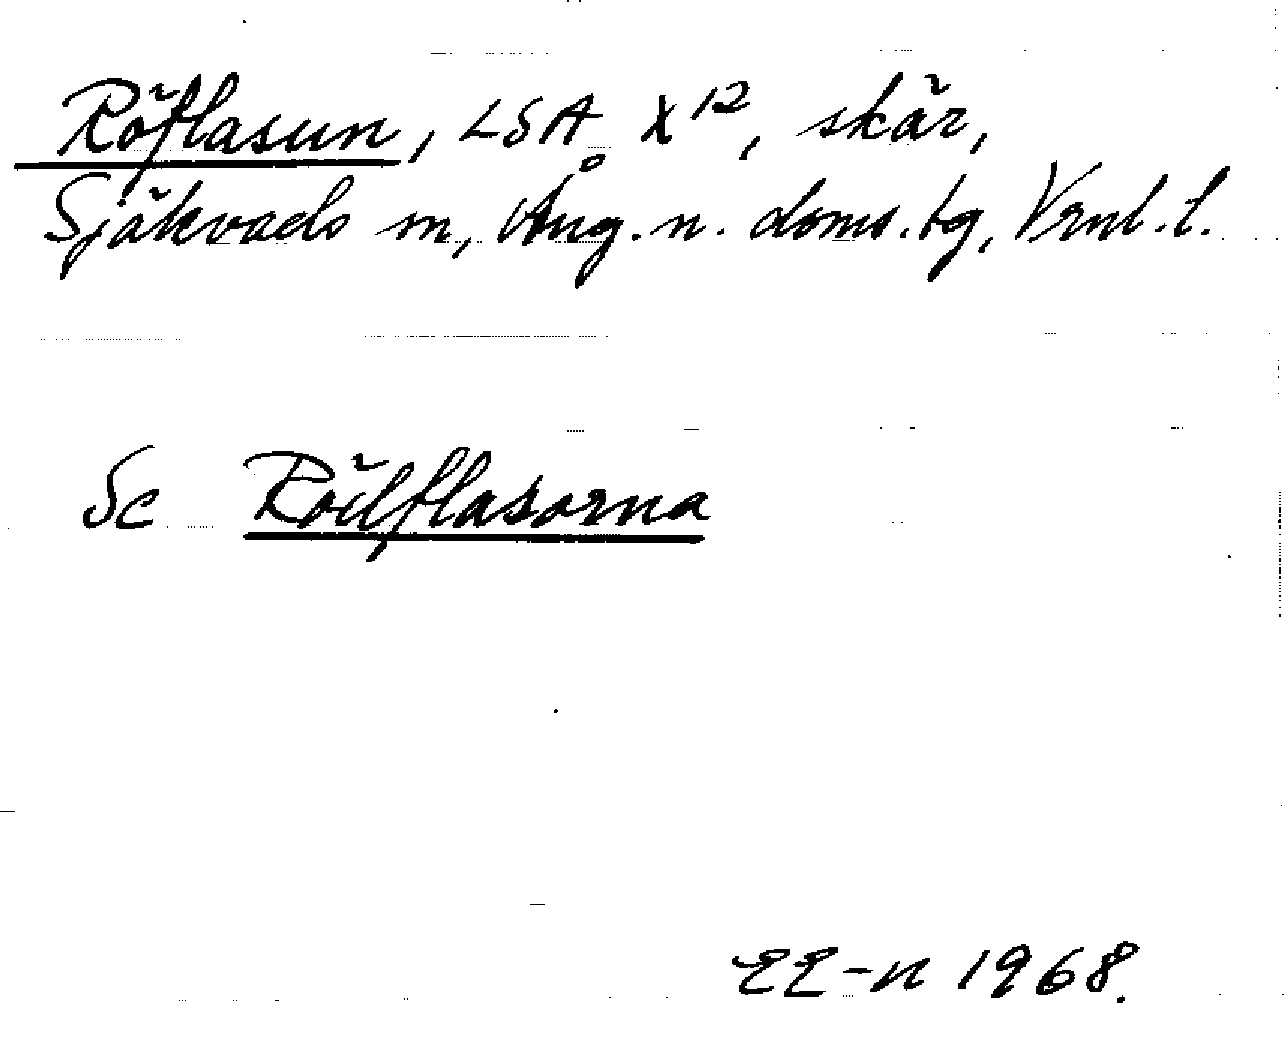 Röflasun, LSA X12, skär,
Sjäkvads m, Ång. n. doms. tg, Vrml. l.
Se Rödflasorna
EE-n 1968.